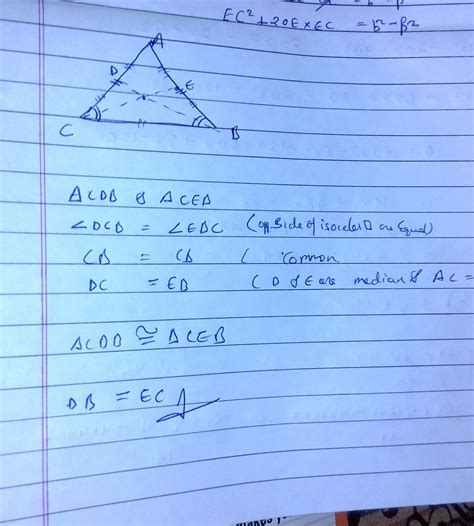 EC² + 2OE × EC = b² - β²
A
D
E
C
B
ΔCDB & ΔCEB
∠DCB = ∠EBC (opp. side of isoceles Δ are Equal)
CB = CB ( Common
DC = EB ( D & E are median of AC =
ΔCDB ≅ ΔCEB
DB = EC